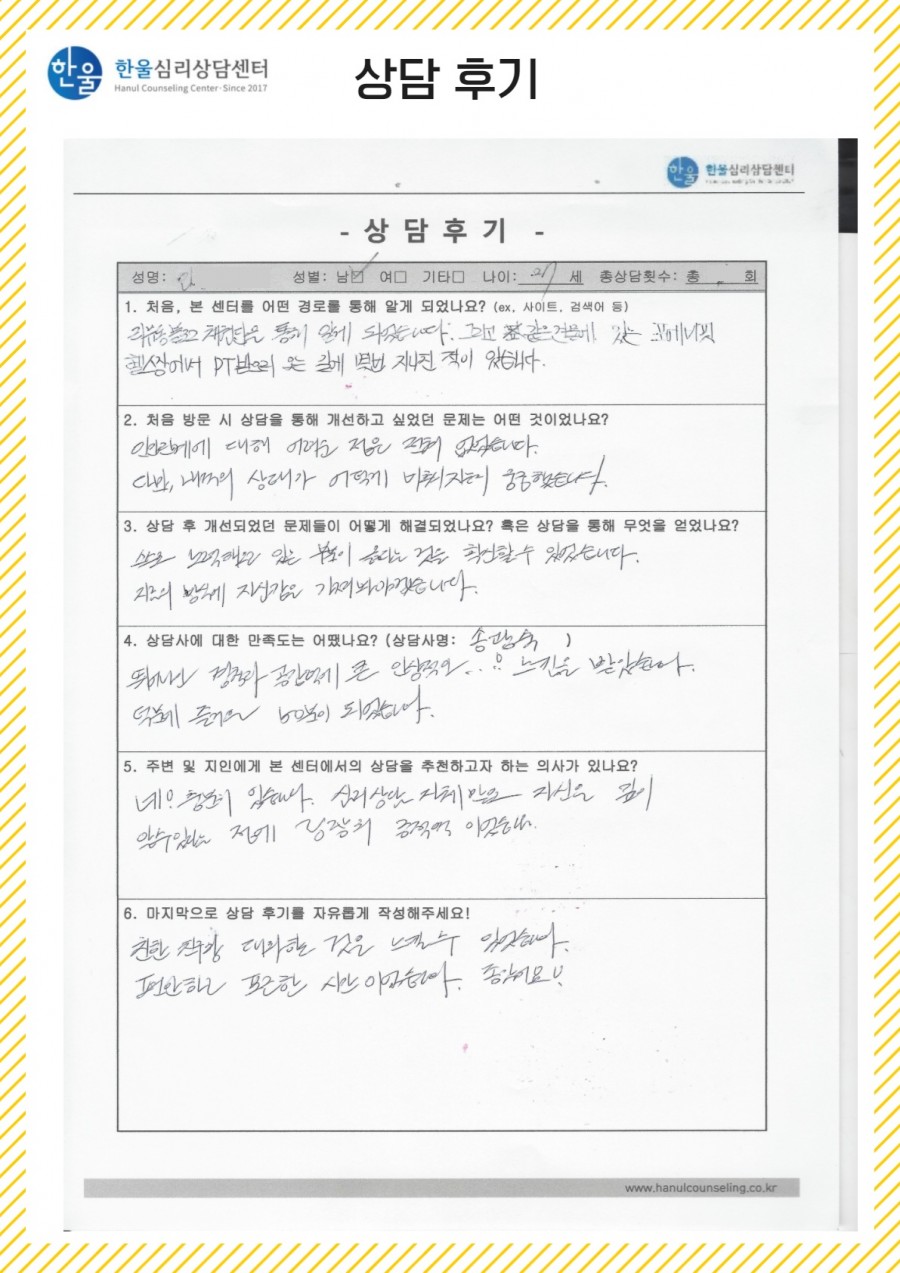 한울
한울심리상담센터
Hanul Counseling Center·Since 2017
상담 후기
한울
한울심리상담센터
- 상 담 후 기 -
성명: 성별: 남☑ 여□ 기타□ 나이: 세 총상담횟수: 총 회
1. 처음, 본 센터를 어떤 경로를 통해 알게 되었나요? (ex, 사이트, 검색어 등)
통해 알게 되었습니다. 그리고 같은건물에 있는
헬스장에서 PT받으러 오는 길에 몇번 지나친 적이 있습니다.
2. 처음 방문 시 상담을 통해 개선하고 싶었던 문제는 어떤 것이었나요?
인간관계에 대해 어려운 점은 전혀 없었습니다.
다만, 내면의 상태가 어떻게 비춰지는지 궁금했습니다.
3. 상담 후 개선되었던 문제들이 어떻게 해결되었나요? 혹은 상담을 통해 무엇을 얻었나요?
스스로 노력하고 있는 부분이 옳다는 것을 확신할 수 있었습니다.
지금의 방향에 자신감을 가져봐야겠습니다.
4. 상담사에 대한 만족도는 어땠나요? (상담사명: )
뛰어난 경청과 공감력에 큰 느낌을 받았습니다.
덕분에 즐거운 되었습니다.
5. 주변 및 지인에게 본 센터에서의 상담을 추천하고자 하는 의사가 있나요?
네! 충분히 있습니다. 심리상담 자체만으로 자신을 깊이
알수있다는 점에 굉장히 긍정적 이었습니다.
6. 마지막으로 상담 후기를 자유롭게 작성해주세요!
친한 친구랑 대화하는 것을 느낄수 있었습니다.
편안하고 포근한 시간이었습니다. 좋았어요!
www.hanulcounseling.co.kr